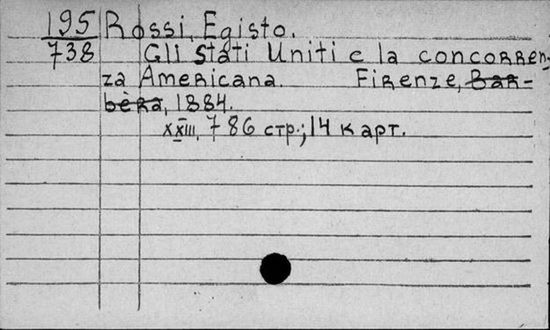 195 Rossi, Egisto.
738 Gli Stati Uniti e la concorren-
za Americana. Firenze, Bar-
bèra, 1884.
XXIII, 786 стр.; 14 карт.